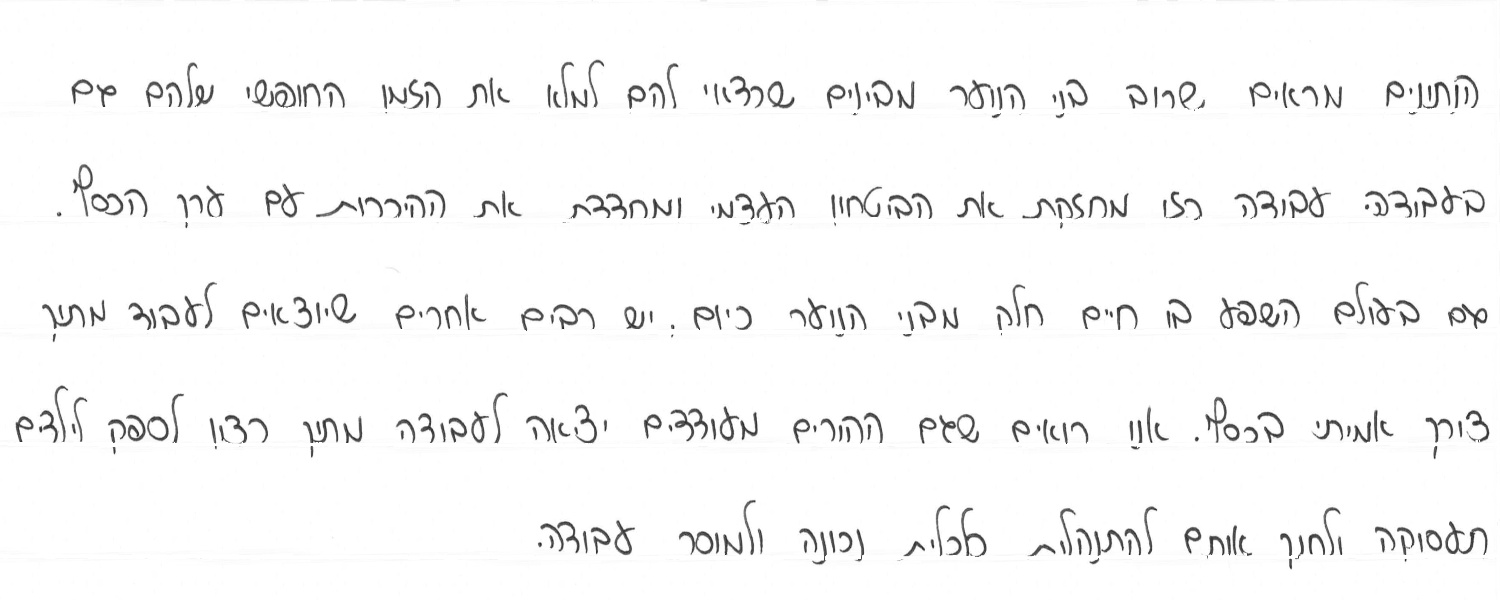 הנתונים מראים שרוב בני הנוער מבינים שכדאי להם למלא את הזמן החופשי שלהם גם
בעבודה. עבודה כזו מחזקת את הביטחון העצמי ומחדדת את ההיכרות עם ערך הכסף.
גם בעולם השפע בו חיים חלק מבני הנוער כיום, יש רבים אחרים שיוצאים לעבוד מתוך
צורך אמיתי בכסף. אנו רואים שגם ההורים מעודדים יציאה לעבודה מתוך רצון לספק לילדים
תעסוקה ולחנך אותם להתנהלות כלכלית נכונה ולמוסר עבודה.